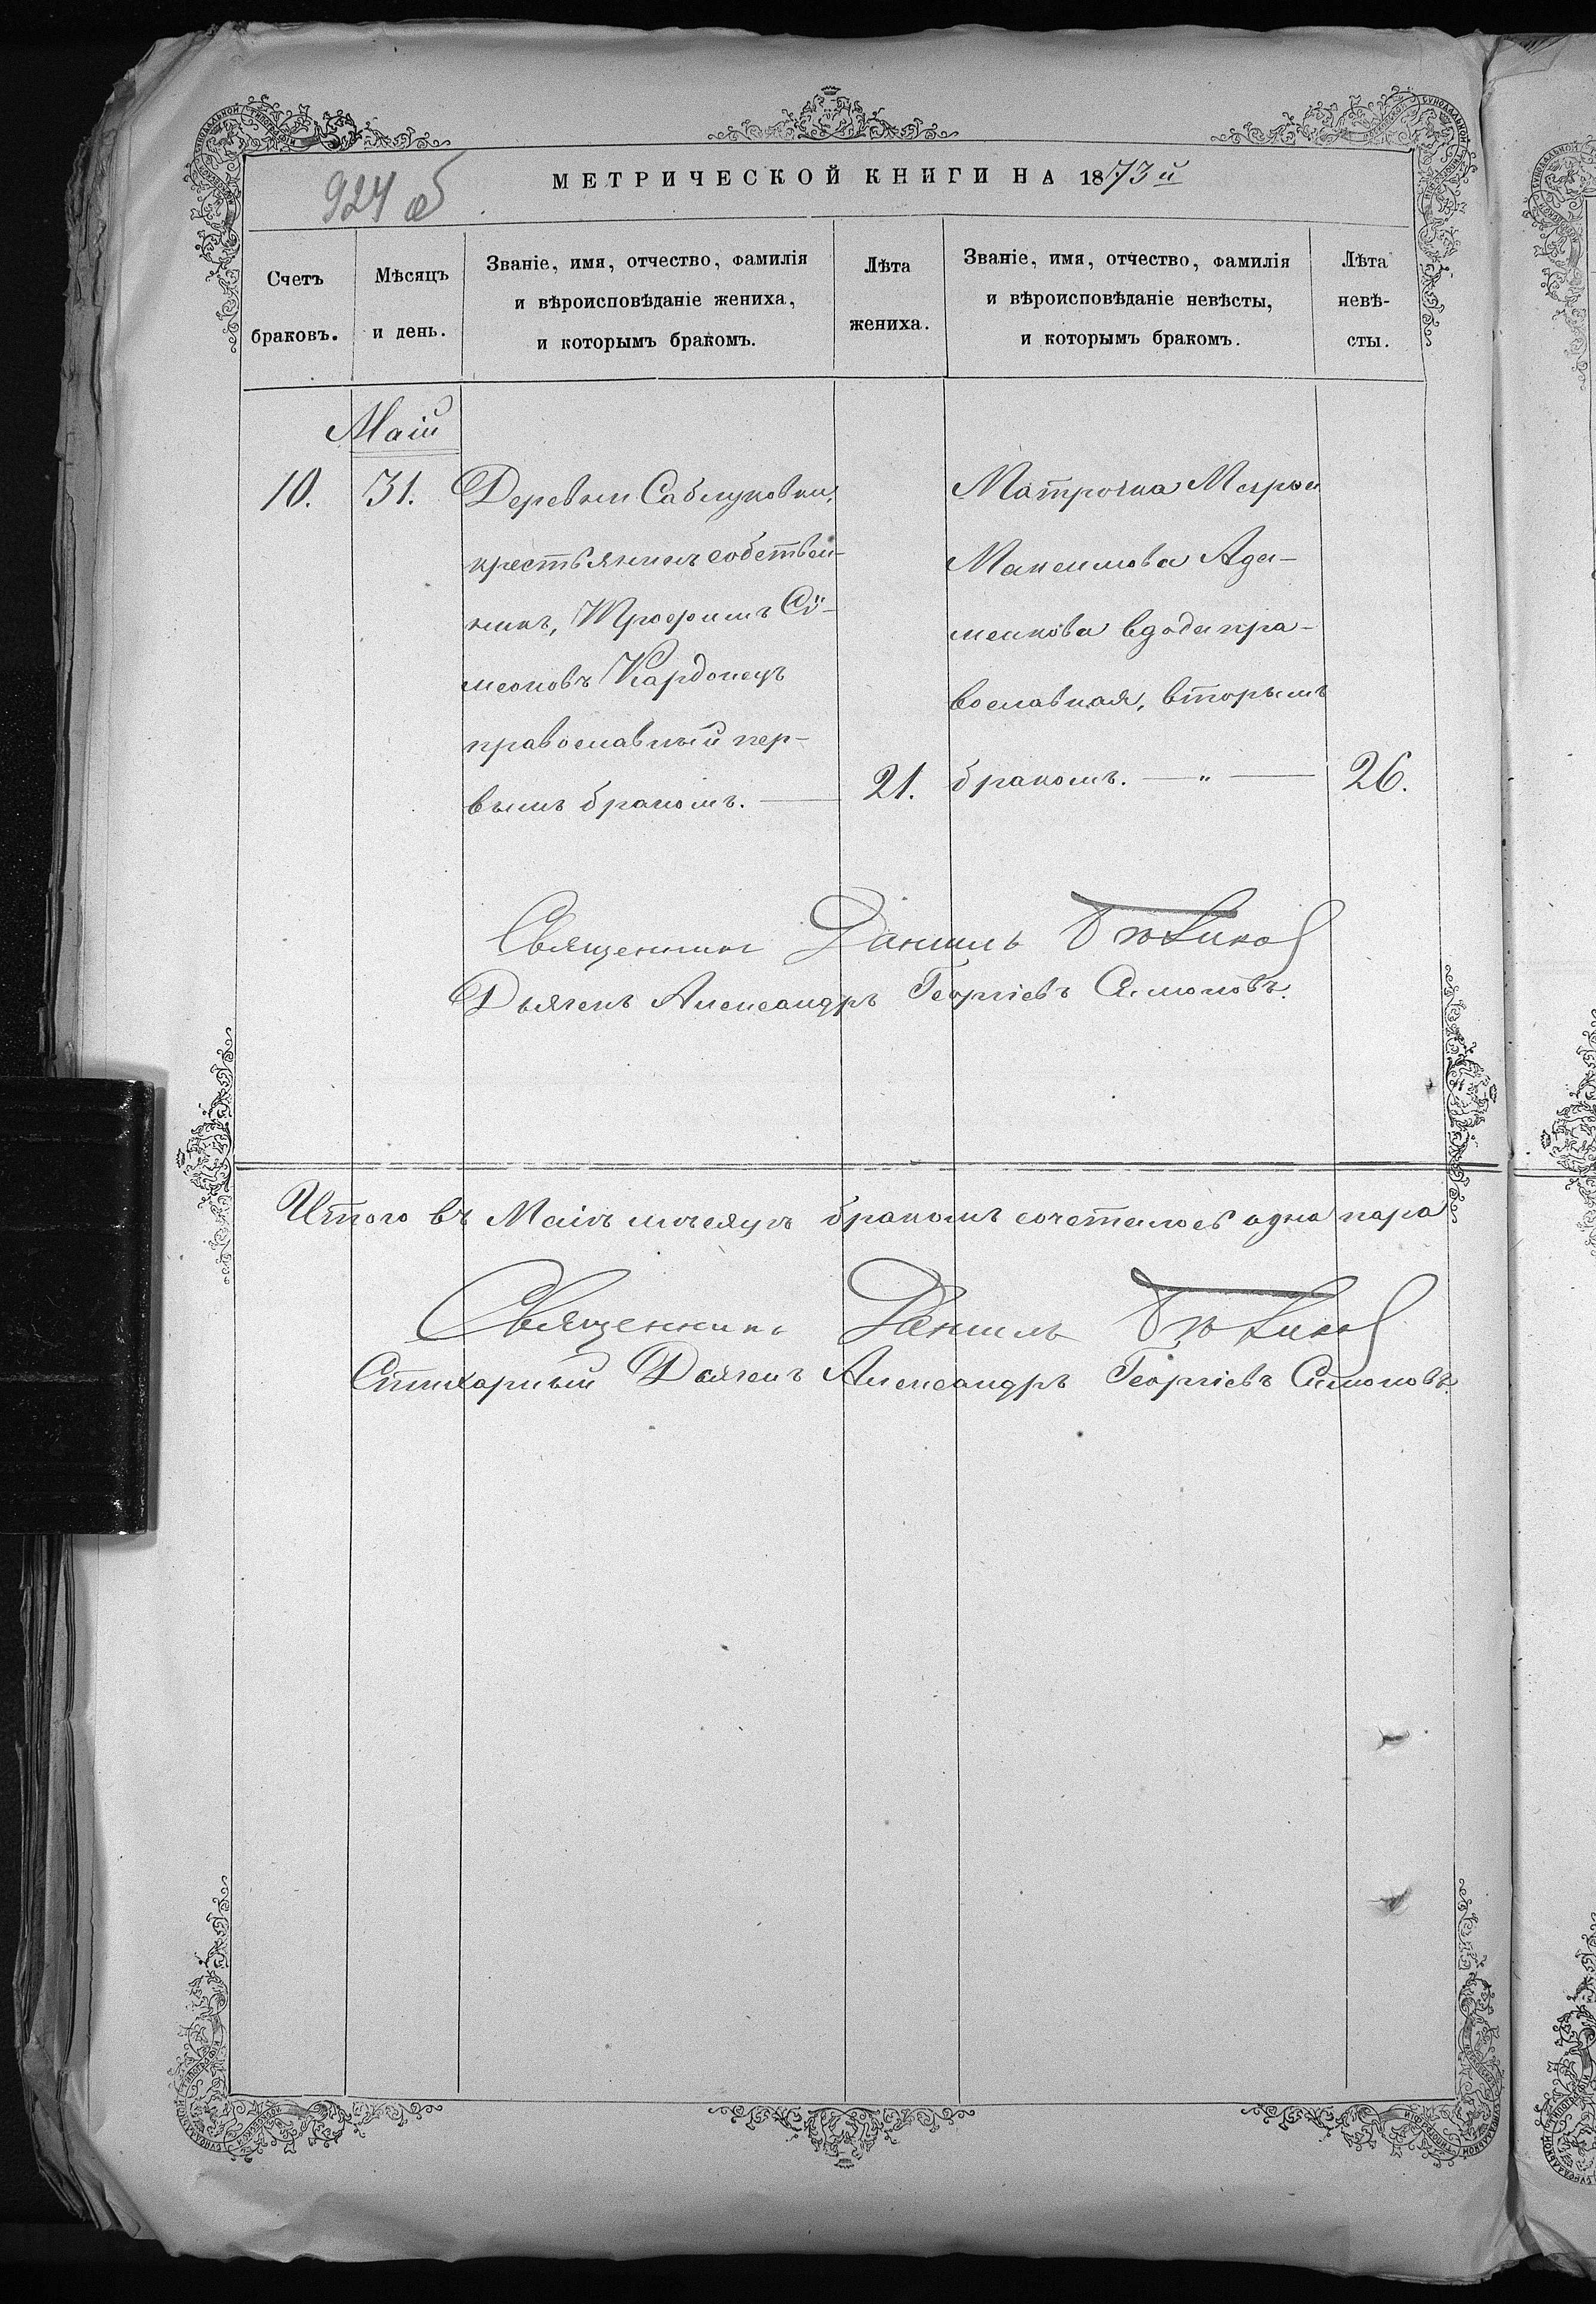 924 об
МЕТРИЧЕСКОЙ КНИГИ НА 1873й
Счетъ браковъ.
Мѣсяцъ и день.
Званіе, имя, отчество, фамилія
и вѣроисповѣданіе жениха,
и которымъ бракомъ.
Лѣта жениха.
Званіе, имя, отчество, фамилія
и вѣроисповѣданіе невѣсты,
и которымъ бракомъ.
Лѣта невѣ-
сты.
Маій
10. 31.
Деревни Саблуковки,
крестьянинъ собствен-
никъ, Трофимъ Сѵ-
меоновъ Кардонецъ
православный пер-
вымъ бракомъ. —
21.
Матрона
Максимова Ада-
менкова вдова пра-
вославная, вторымъ
бракомъ. — " —
26.
Священникъ Даніилъ
Дьячекъ Александръ Георгіевъ Симоновъ.
Итого въ Маіѣ мѣсяцѣ бракомъ сочеталось одна пара
Священникъ Даніилъ
Стихарный Дьячекъ Александръ Георгіевъ Симоновъ.